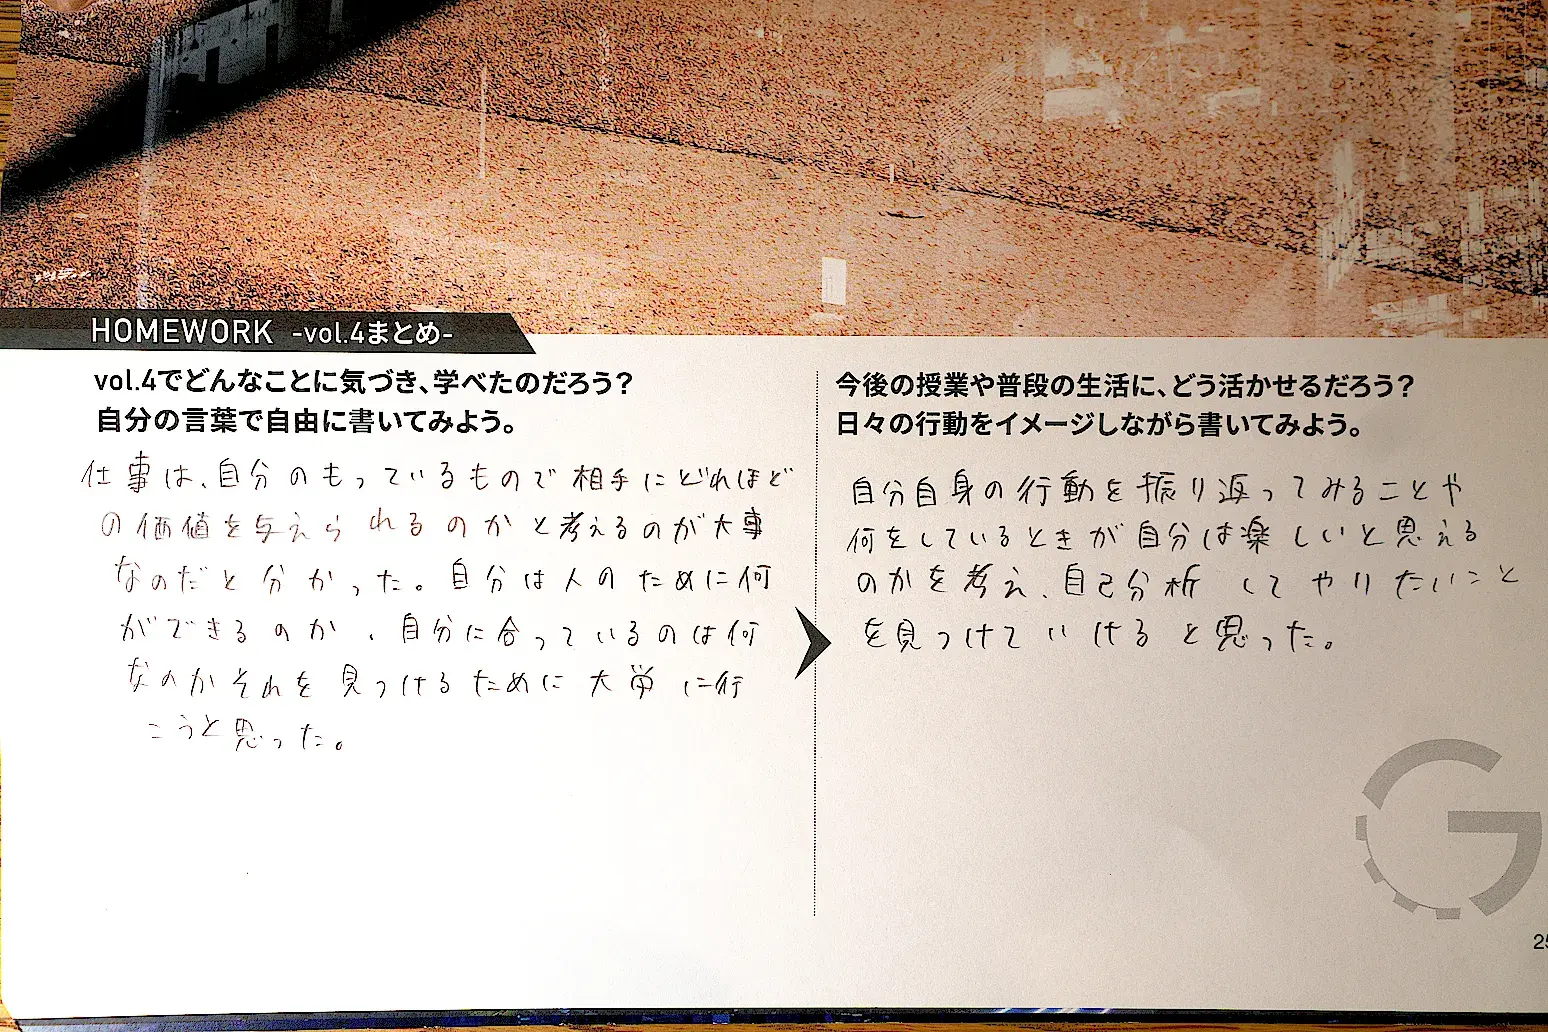 HOMEWORK -vol.4まとめ-
vol.4でどんなことに気づき、学べたのだろう?
自分の言葉で自由に書いてみよう。
仕事は、自分のもっているもので相手にどれほど
の価値を与えられるのかと考えるのが大事
なのだと分かった。自分は人のために何
ができるのか、自分に合っているのは何
なのかそれを見つけるために大学に行
こうと思った。
今後の授業や普段の生活に、どう活かせるだろう?
日々の行動をイメージしながら書いてみよう。
自分自身の行動を振り返ってみることや
何をしているときが自分は楽しいと思える
のかを考え、自己分析してやりたいこと
を見つけていけると思った。
25